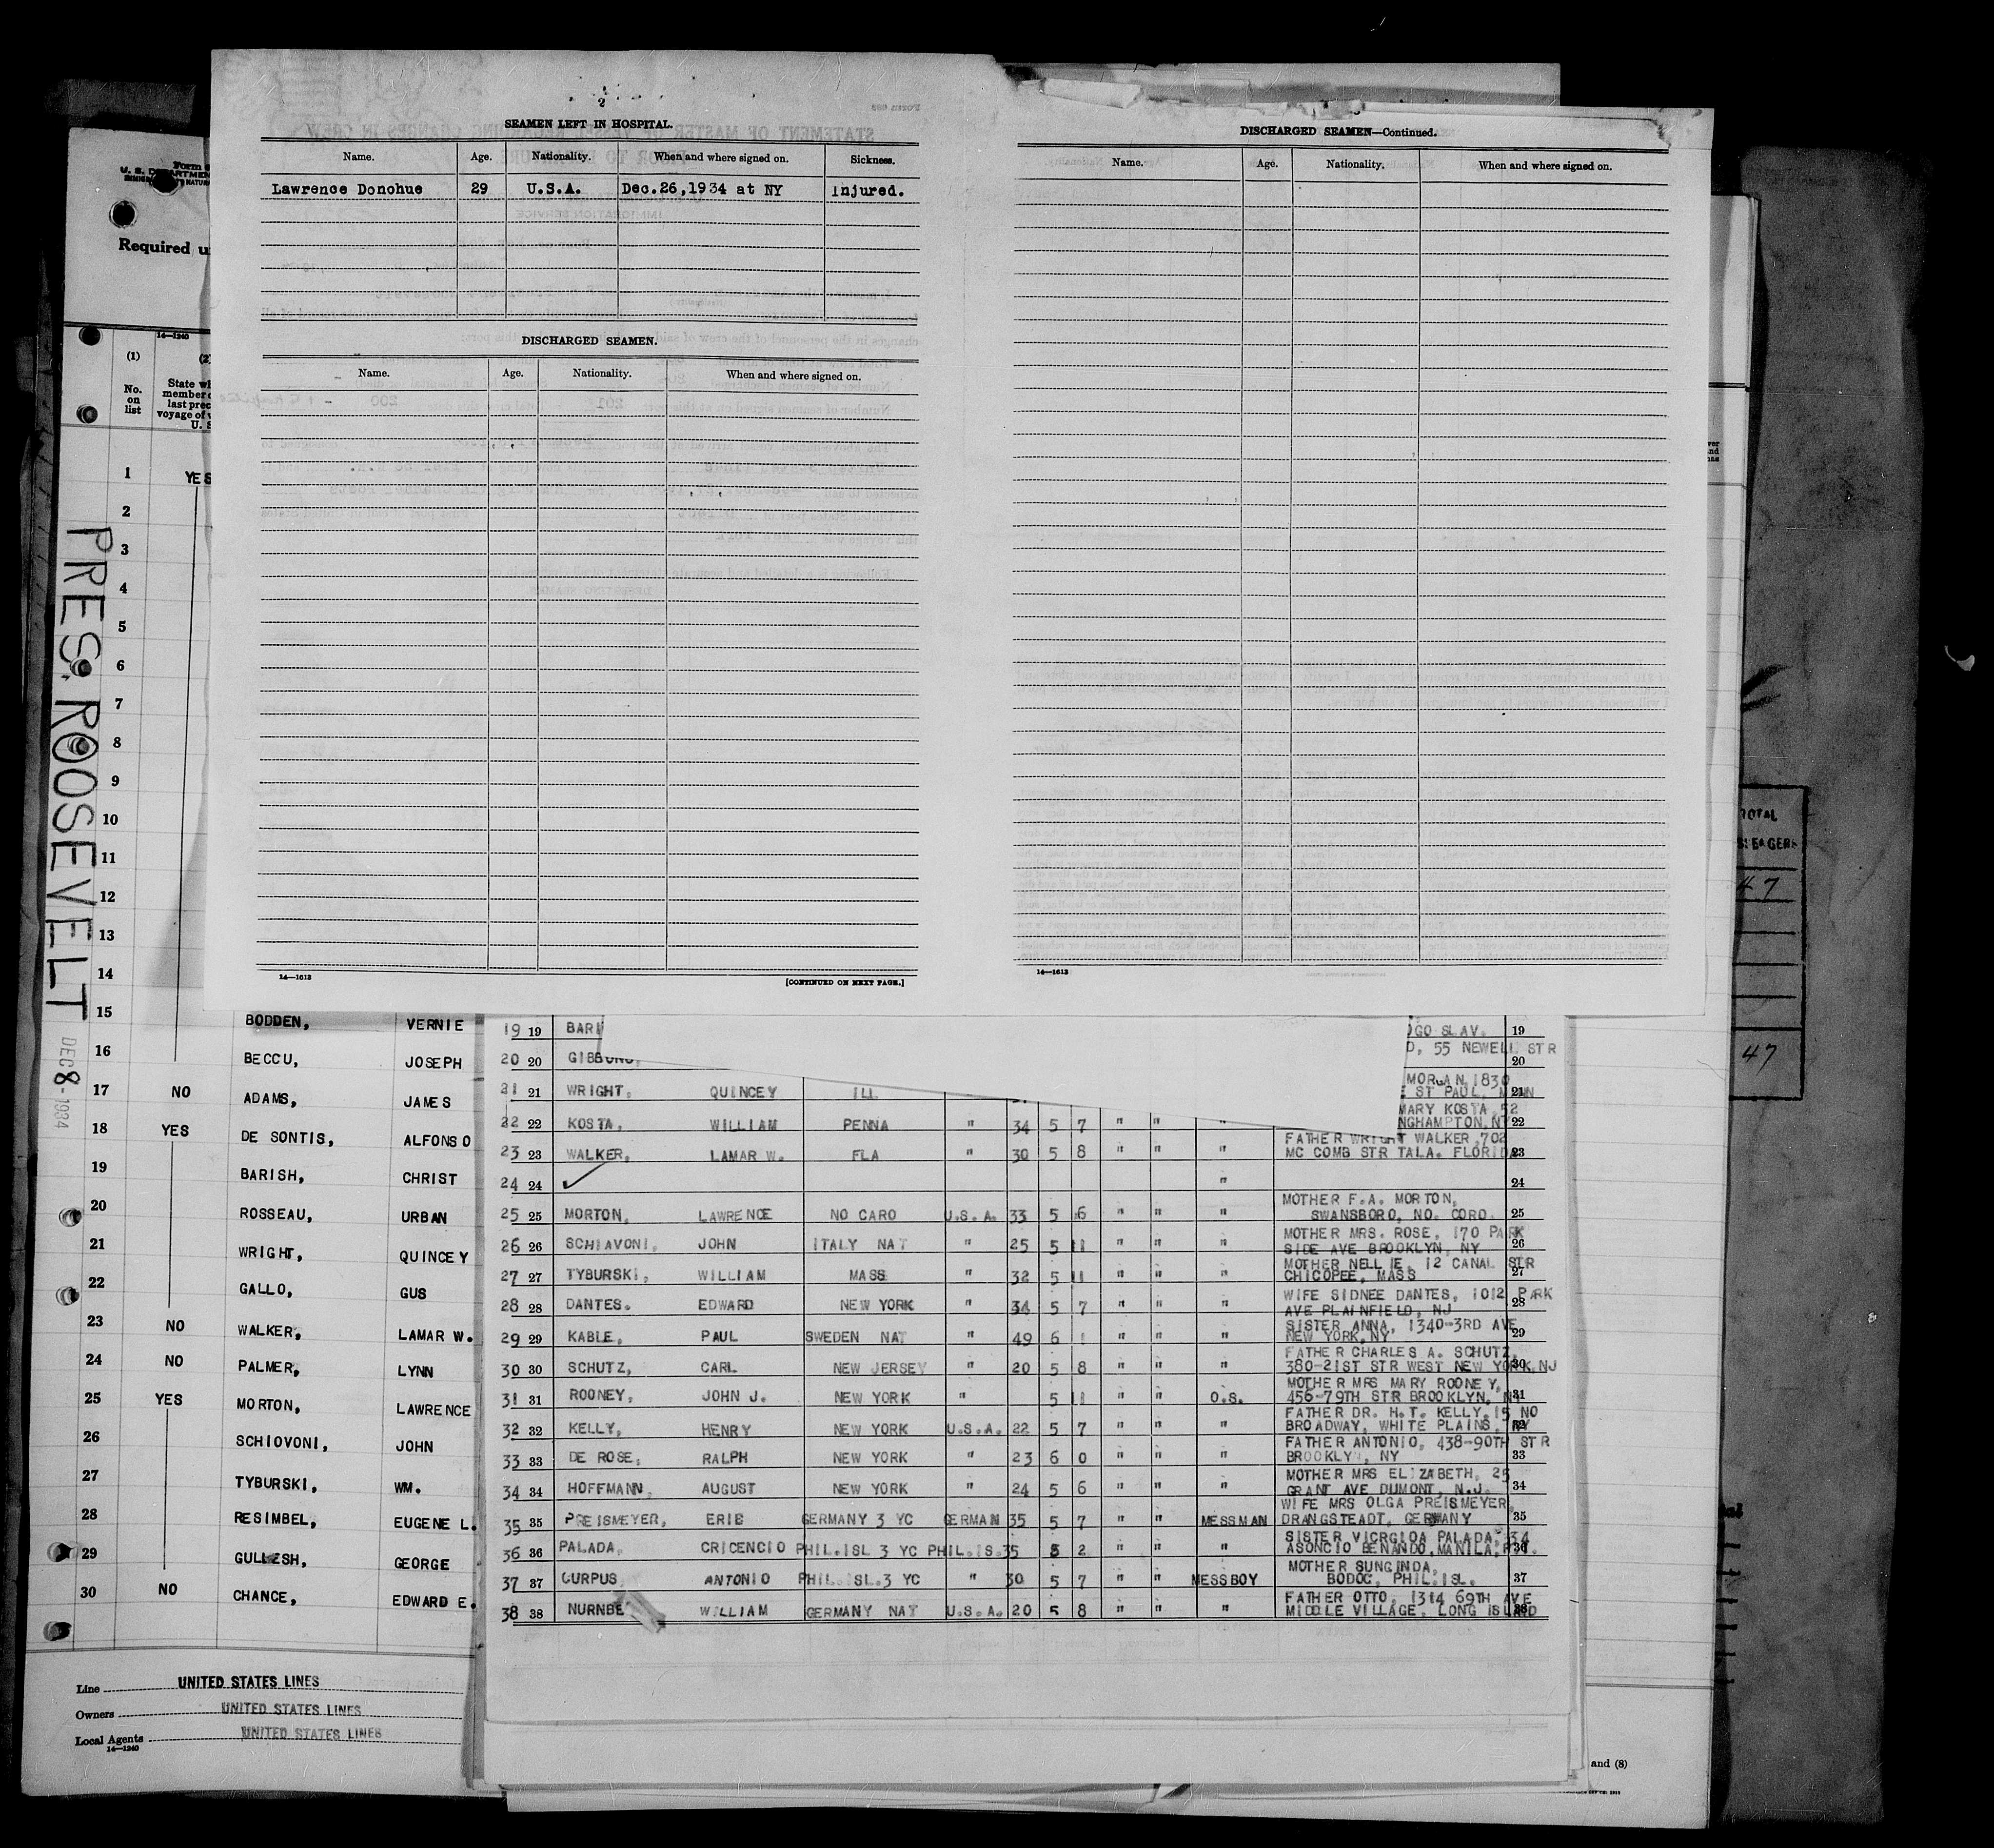 2
SEAMEN LEFT IN HOSPITAL.
Name. Age. Nationality. When and where signed on. Sickness.
Lawrence Donohue 29 U.S.A. Dec.26,1934 at NY Injured.
DISCHARGED SEAMEN.
Name. Age. Nationality. When and where signed on.
14—1613 [CONTINUED ON NEXT PAGE.]
DISCHARGED SEAMEN—Continued.
Name. Age. Nationality. When and where signed on.
14—1613
U. S. DEPARTMENT
Required u
14—1240
(1) (2
No. on list
State w
member
last prec
voyage of
U. S
PRES. ROOSEVELT
DEC 8 - 1934
1 YES
2
3
4
5
6
7
8
9
10
11
12
13
14
15 BODDEN, VERNIE
16 BECCU, JOSEPH
17 NO ADAMS, JAMES
18 YES DE SONTIS, ALFONSO
19 BARISH, CHRIST
20 ROSSEAU, URBAN
21 WRIGHT, QUINCEY
22 GALLO, GUS
23 NO WALKER, LAMAR W.
24 NO PALMER, LYNN
25 YES MORTON, LAWRENCE
26 SCHIOVONI, JOHN
27 TYBURSKI, WM.
28 RESIMBEL, EUGENE L.
29 GULLESH, GEORGE
30 NO CHANCE, EDWARD E.
Line UNITED STATES LINES
Owners UNITED STATES LINES
Local Agents UNITED STATES LINES
14—1240
19 19 BARI GO SLAV. 19
20 20 GIBBONS, D, 55 NEWELL STR 20
21 21 WRIGHT, QUINCEY ILL MORGAN 1830
E ST PAUL, MINN 21
22 22 KOSTA, WILLIAM PENNA " 34 5 7 " " " MARY KOSTA 52
NGHAMPTON, NY 22
23 23 WALKER, LAMAR W. FLA " 30 5 8 " " " FATHER WRIGHT WALKER 702
MC COMB STR TALA. FLORIDA 23
24 24 " 24
25 25 MORTON, LAWRENCE NO CARO U.S.A. 33 5 6 " " " MOTHER F.A. MORTON,
SWANSBORO, NO. CORO. 25
26 26 SCHIAVONI, JOHN ITALY NAT " 25 5 11 " " " MOTHER MRS. ROSE, 170 PARK
SIDE AVE BROOKLYN, NY 26
27 27 TYBURSKI, WILLIAM MASS " 32 5 11 " " " MOTHER NELLIE, 12 CANAL STR
CHICOPEE, MASS 27
28 28 DANTES. EDWARD NEW YORK " 34 5 7 " " " WIFE SIDNEE DANTES, 1012 PARK
AVE PLAINFIELD, NJ 28
29 29 KABLE, PAUL SWEDEN NAT " 49 6 1 " " " SISTER ANNA, 1340-3RD AVE
NEW YORK, NY 29
30 30 SCHUTZ, CARL NEW JERSEY " 20 5 8 " " " FATHER CHARLES A. SCHUTZ,
380-21ST STR WEST NEW YORK, NJ 30
31 31 ROONEY, JOHN J. NEW YORK " 5 11 " " O.S. MOTHER MRS MARY ROONEY,
456-79TH STR BROOKLYN, NY 31
32 32 KELLY, HENRY NEW YORK U.S.A. 22 5 7 " " " FATHER DR. H.T. KELLY, 15 NO
BROADWAY, WHITE PLAINS, NY 32
33 33 DE ROSE, RALPH NEW YORK " 23 6 0 " " " FATHER ANTONIO, 438-90TH STR
BROOKLYN, NY 33
34 34 HOFFMANN, AUGUST NEW YORK " 24 5 6 " " " MOTHER MRS ELIZABETH, 25
GRANT AVE DUMONT, N.J. 34
35 35 PREISMEYER, ERIB GERMANY 3 YC GERMAN 35 5 7 " " MESSMAN WIFE MRS OLGA PREISMEYER,
DRANGSTEADT, GERMANY 35
36 36 PALADA, CRICENCIO PHIL.ISL 3 YC PHIL.IS. 35 5 2 " " " SISTER VICRGIOA PALADA, 34
ASONCIO BENANDO, MANILA, P.I. 36
37 37 CURPUS, ANTONIO PHIL.ISL.3 YC " 30 5 7 " " MESSBOY MOTHER SUNGINDA,
BODOC, PHIL.ISL. 37
38 38 NURNBE WILLIAM GERMANY NAT U.S.A. 20 5 8 " " " FATHER OTTO, 1314 69TH AVE
MIDDLE VILLAGE, LONG ISLAND 38
TOTAL
47
47
and (8)